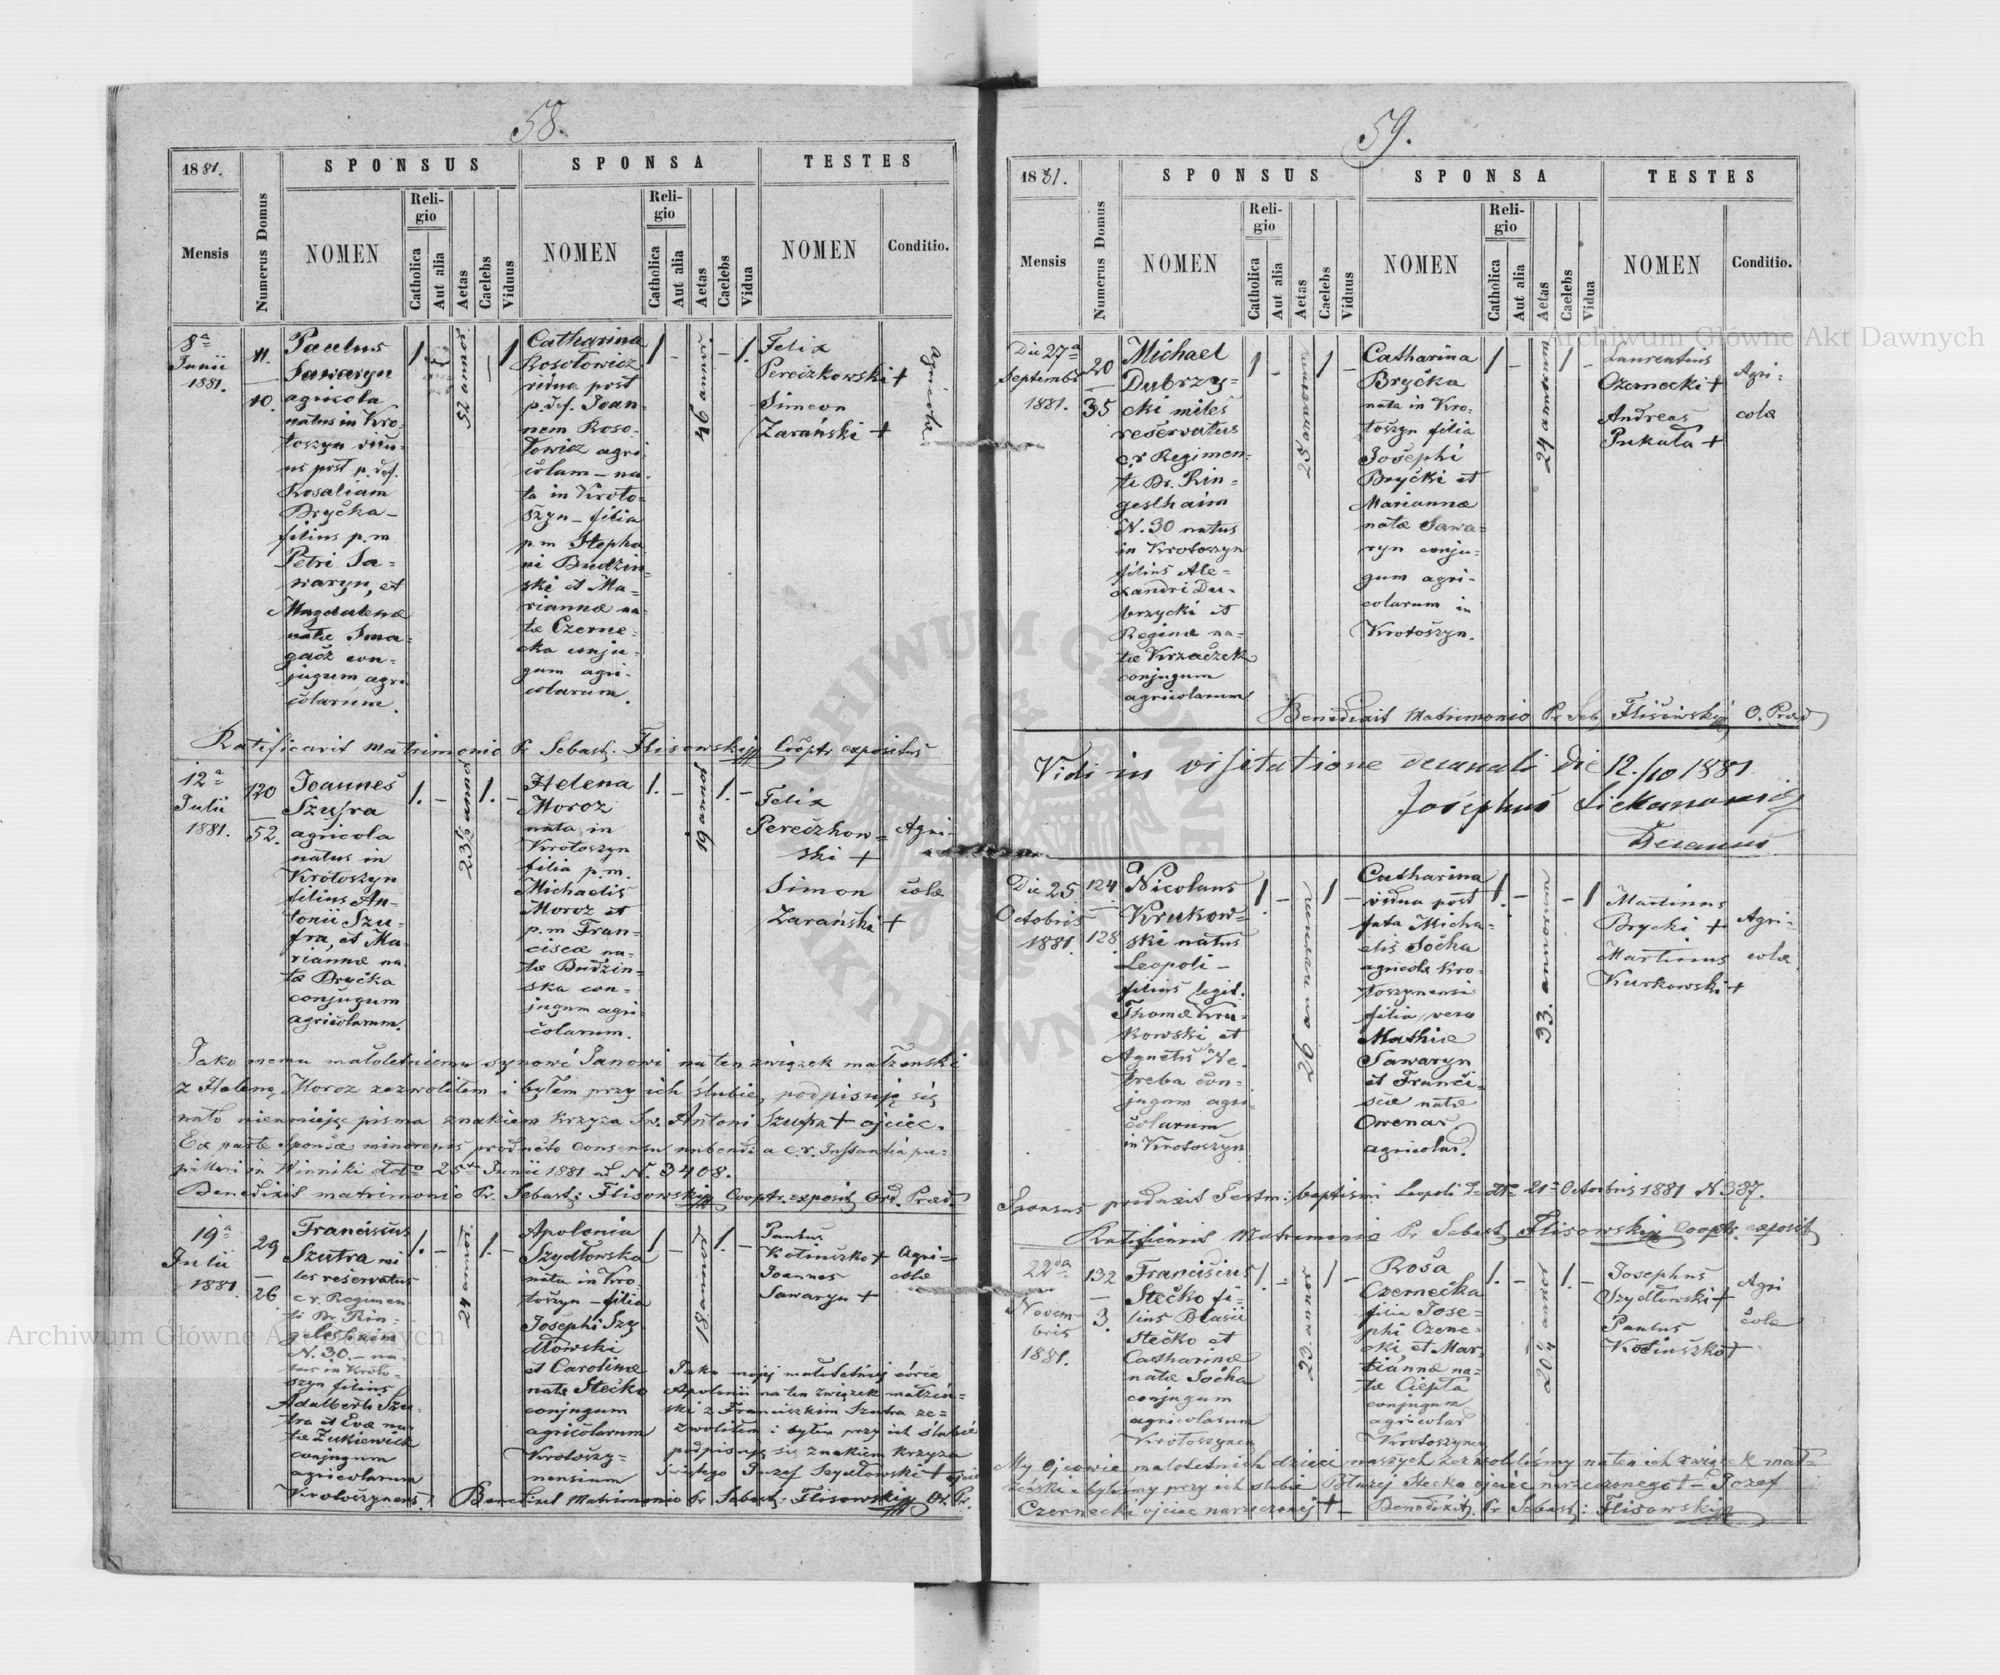 58.
1881.
SPONSUS
SPONSA
TESTES
Mensis
Numerus Domus
NOMEN
Religio
Catholica
Aut alia
Aetas
Caelebs
Viduus
NOMEN
Religio
Catholica
Aut alia
Aetas
Caelebs
Vidua
NOMEN
Conditio.
8a
Junii
1881.
11.
10.
Paulus
Sawaryn
agricola
natus in Kro-
toszyn vidu-
us post p. def.
Rosaliam
Bryčka –
filius p.m
Petri Sa-
waryn, et
Magdalenæ
natæ Sma-
gacz con-
jugum agri-
colarum.
1
–
52 annor.
–
1
Catharina
Kosołowicz
vidua post
p. def. Joan-
nem Koso-
łowicz agri-
colam – na-
ta in Kroto-
szyn – filia
p.m Stepha
ni Budzin-
ski et Ma-
riannæ na-
tæ Czerne-
cka conju-
gum agri-
colarum.
1
–
46 annor.
–
1.
Felix
Pereczkowski +
Simeon
Zarański +
agricolæ
Ratificavit matrimonio Pr Sebast: Flisowski Cooptr expositus
12a
Julii
1881.
120
52.
Joannes
Szufra
agricola
natus in
Krotoszyn
filius An-
tonii Szu-
fra, et Ma-
riannæ na-
tæ Bryčka
conjugum
agricolarum.
1.
–
23½ annor
1.
–
Helena
Moroz
nata in
Krotoszyn
filia p.m.
Michaelis
Moroz et
p.m Fran-
ciscæ na-
tæ Budzin-
ska con-
jugum agri-
colarum.
1.
–
19 annor
1.
–
Felix
Pereczkow-
ski +
Simon
Zarański +
Agri-
colæ
Jako memu małoletniemu synowi Janowi na ten związek małżenski
z Heleną Moroz zezwolilem i byłem przy ich ślubie, podpisuję się
nato nieumiejąc pisma znakiem krzyża Sw. Antoni Szufra + ojciec.
Ex parte Sponsæ minorenis producto consensu nubendi a c.r. Instantia pu-
pillari in Winniki dto 25ta Junii 1881 ad N. 3408.
Benedixit matrimonio Pr. Sebast: Flisowski Cooptr. exposit Ord. Præd.
19a
Julii
1881.
29
26.
Franciscus
Szutra mi
les reservatus
c.r. Regimen-
ti Br. Rin-
gelsheim
N. 30. – na-
tus in Kroto-
szyn filius
Adalberti Szu-
tra et Evæ na-
tæ Żukiewicz
conjugum
agricolarum
Krotoszynens.
1.
–
24 annor.
1.
–
Apolonia
Szydłowska
nata in Kro-
toszyn – filia
Josephi Szy-
dłowski
et Carolinæ
natæ Stečko
conjugum
agricolarum
Krotoszy-
nensium
1
–
18 annor
1.
–
Paulus
Kotiuszko +
Joannes
Sawaryn +
Agri-
colæ
Jako mojej małoletniej córce
Apolonii na ten związek małżeń-
ski z Franciszkiem Szutra ze-
zwolilem i byłem przy ich ślubie
podpisuję się znakiem krzyża
świętego Jozef Szydłowski + ojciec
Benedixit Matrimonio Pr Sebast: Flisowski Or. Pr.
59.
1881.
SPONSUS
SPONSA
TESTES
Mensis
Numerus Domus
NOMEN
Religio
Catholica
Aut alia
Aetas
Caelebs
Viduus
NOMEN
Religio
Catholica
Aut alia
Aetas
Caelebs
Vidua
NOMEN
Conditio.
Die 27a
Septembr
1881.
20
35
Michael
Dubrzy-
cki miles
reservatus
c.r Regimen-
ti Br. Rin-
geslhaim
N. 30 natus
in Krotoszyn
filius Ale-
xandri Du-
brzycki et
Reginæ na-
tæ Krzaczek
conjugum
agricolarum
1
–
25 annorum
1
–
Catharina
Bryčka
nata in Kro-
toszyn filia
Josephi
Bryčki et
Mariannæ
natæ Sawa-
ryn conju-
gum agri-
colarum in
Krotoszyn.
1
–
24 annorum
1
–
Laurentius
Ożernecki +
Andreas
Pukała +
Agri-
colæ
Benedixit Matrimonio Pr Seb. Flisowski O. Præd
Vidi in visitatione decanali die 12./10 1881
Josephus
Decanus
Die 25
Octobris
1881.
124
128
Nicolaus
Krukow-
ski natus
Leopoli –
filius legit.
Thomæ Kru-
kowski et
Agnetis Ne-
treba con-
jugum agri-
colarum
in Krotoszyn
1
–
26 annorum
1
–
Catharina
vidua post
fata Micha-
elis Socha
agricolæ Kro-
toszynensi
filia vero
Mathiæ
Sawaryn
et Franci-
scæ natæ
Owenar
agricolar.
1.
–
33. annorum
–
1
Martinus
Brycki +
Martinus
Kurkowski +
Agri-
colæ
Sponsus produxit Testm: baptismi Leopoli de dto 21a Octobris 1881 N 387.
Ratificavit Matrimonio Pr Sebast Flisowski Cooptr. exposit
22da
Novem-
bris
1881.
132
3.
Franciscus
Stečko fi-
lius Blasii
Stečko et
Catharinæ
natæ Socha
conjugum
agricolarum
Krotoszynen
1.
–
23. annor
1
–
Rosa
Czernečka
filia Jose-
phi Czerne-
cki et Mar-
iannæ na-
tæ Ciepła
conjugum
agricolar
Krotoszynen
1.
–
20¼ annor
1.
–
Josephus
Szydłowski +
Paulus
Kotiuszko +
Agri
colæ
My Ojcowie małoletnich dzieci naszych zezwoliliśmy na ten ich związek mał-
żeński i bylismy przy ich slubie Błażej Stecko ojciec narzeczonego + – Jozef
Czernecki ojciec narzeczonej + – Benedixit Pr Sebast: Flisowski
Archiwum Główne Akt Dawnych
Archiwum Główne Akt Dawnych
ARCHIWUM GŁÓWNE AKT DAWNYCH